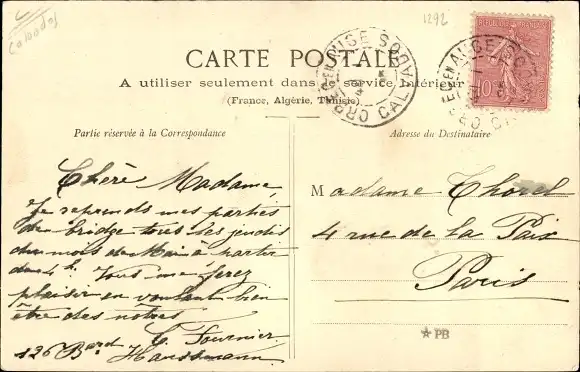 1292
CARTE POSTALE
A utiliser seulement dans le service intérieur
(France, Algérie, Tunisie)
Partie réservée à la Correspondance
Adresse du Destinataire
Chère Madame,
Je reprends mes parties
de bridge tous les jeudis
du mois de Mai à partir
de 4h. Vous me ferez
plaisir en voulant bien
être des nôtres
C. Fournier
126 Bard Haussmann
Madame Thorel
4 rue de la Paix
Paris
★PB
CREVECŒUR EN AUGE
CALVADOS
10